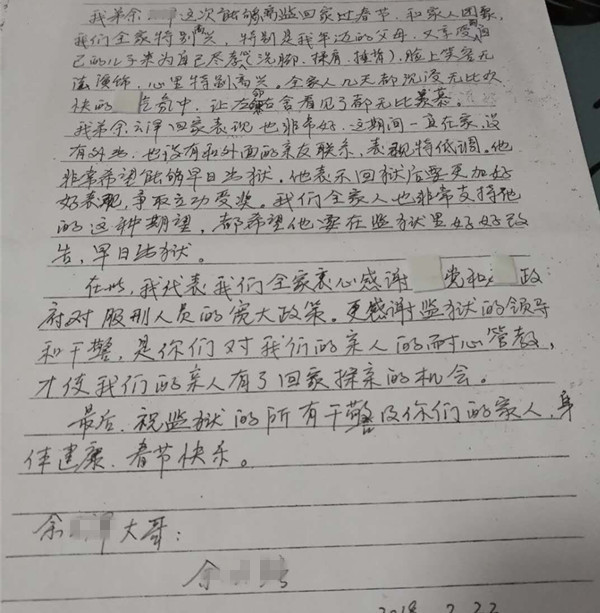 我弟余 这次能够离监回家过春节，和家人团聚，
我们全家特别高兴，特别是我年迈的父母，又享受自
己的儿子来为自己尽孝（洗脚、揉肩、捶背），脸上笑容无
法演饰，心里特别高兴。全家人几天都沉浸无比欢
快的 中，让左邻右舍看见了都无比羡慕。
我弟余云泽回家表现也非常好，这期间一直在家，没
有外出，也没有和外面的亲友联系，表现特低调。他
非常希望能够早日出狱。他表示回狱后要更加好
好表现，争取立功受奖。我们全家人也非常支持他
的这种期望，都希望他要在监狱里好好改
告，早日出狱。
在此，我代表我们全家衷心感谢 党和 政
府对服刑人员的宽大政策。更感谢监狱的领导
和干警，是你们对我们的亲人的耐心管教，
才使我们的亲人有了回家探亲的机会。
最后，祝监狱的所有干警及你们的家人，身
体建康、春节快乐。
余 大哥：
余
2018 2 22